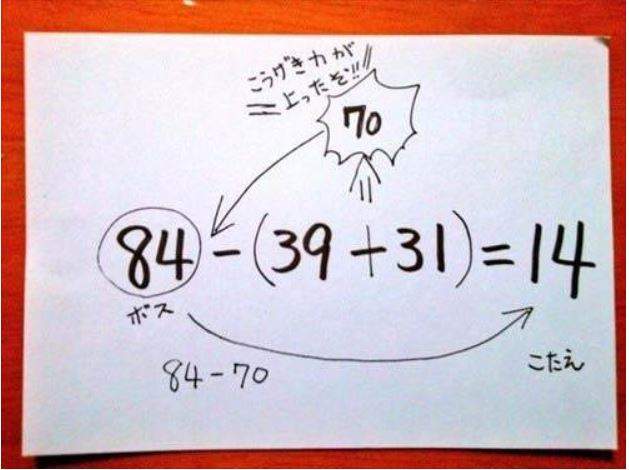 こうげき力が
上ったぞ!!!
70
84-(39+31)=14
ボス
84-70
こたえ